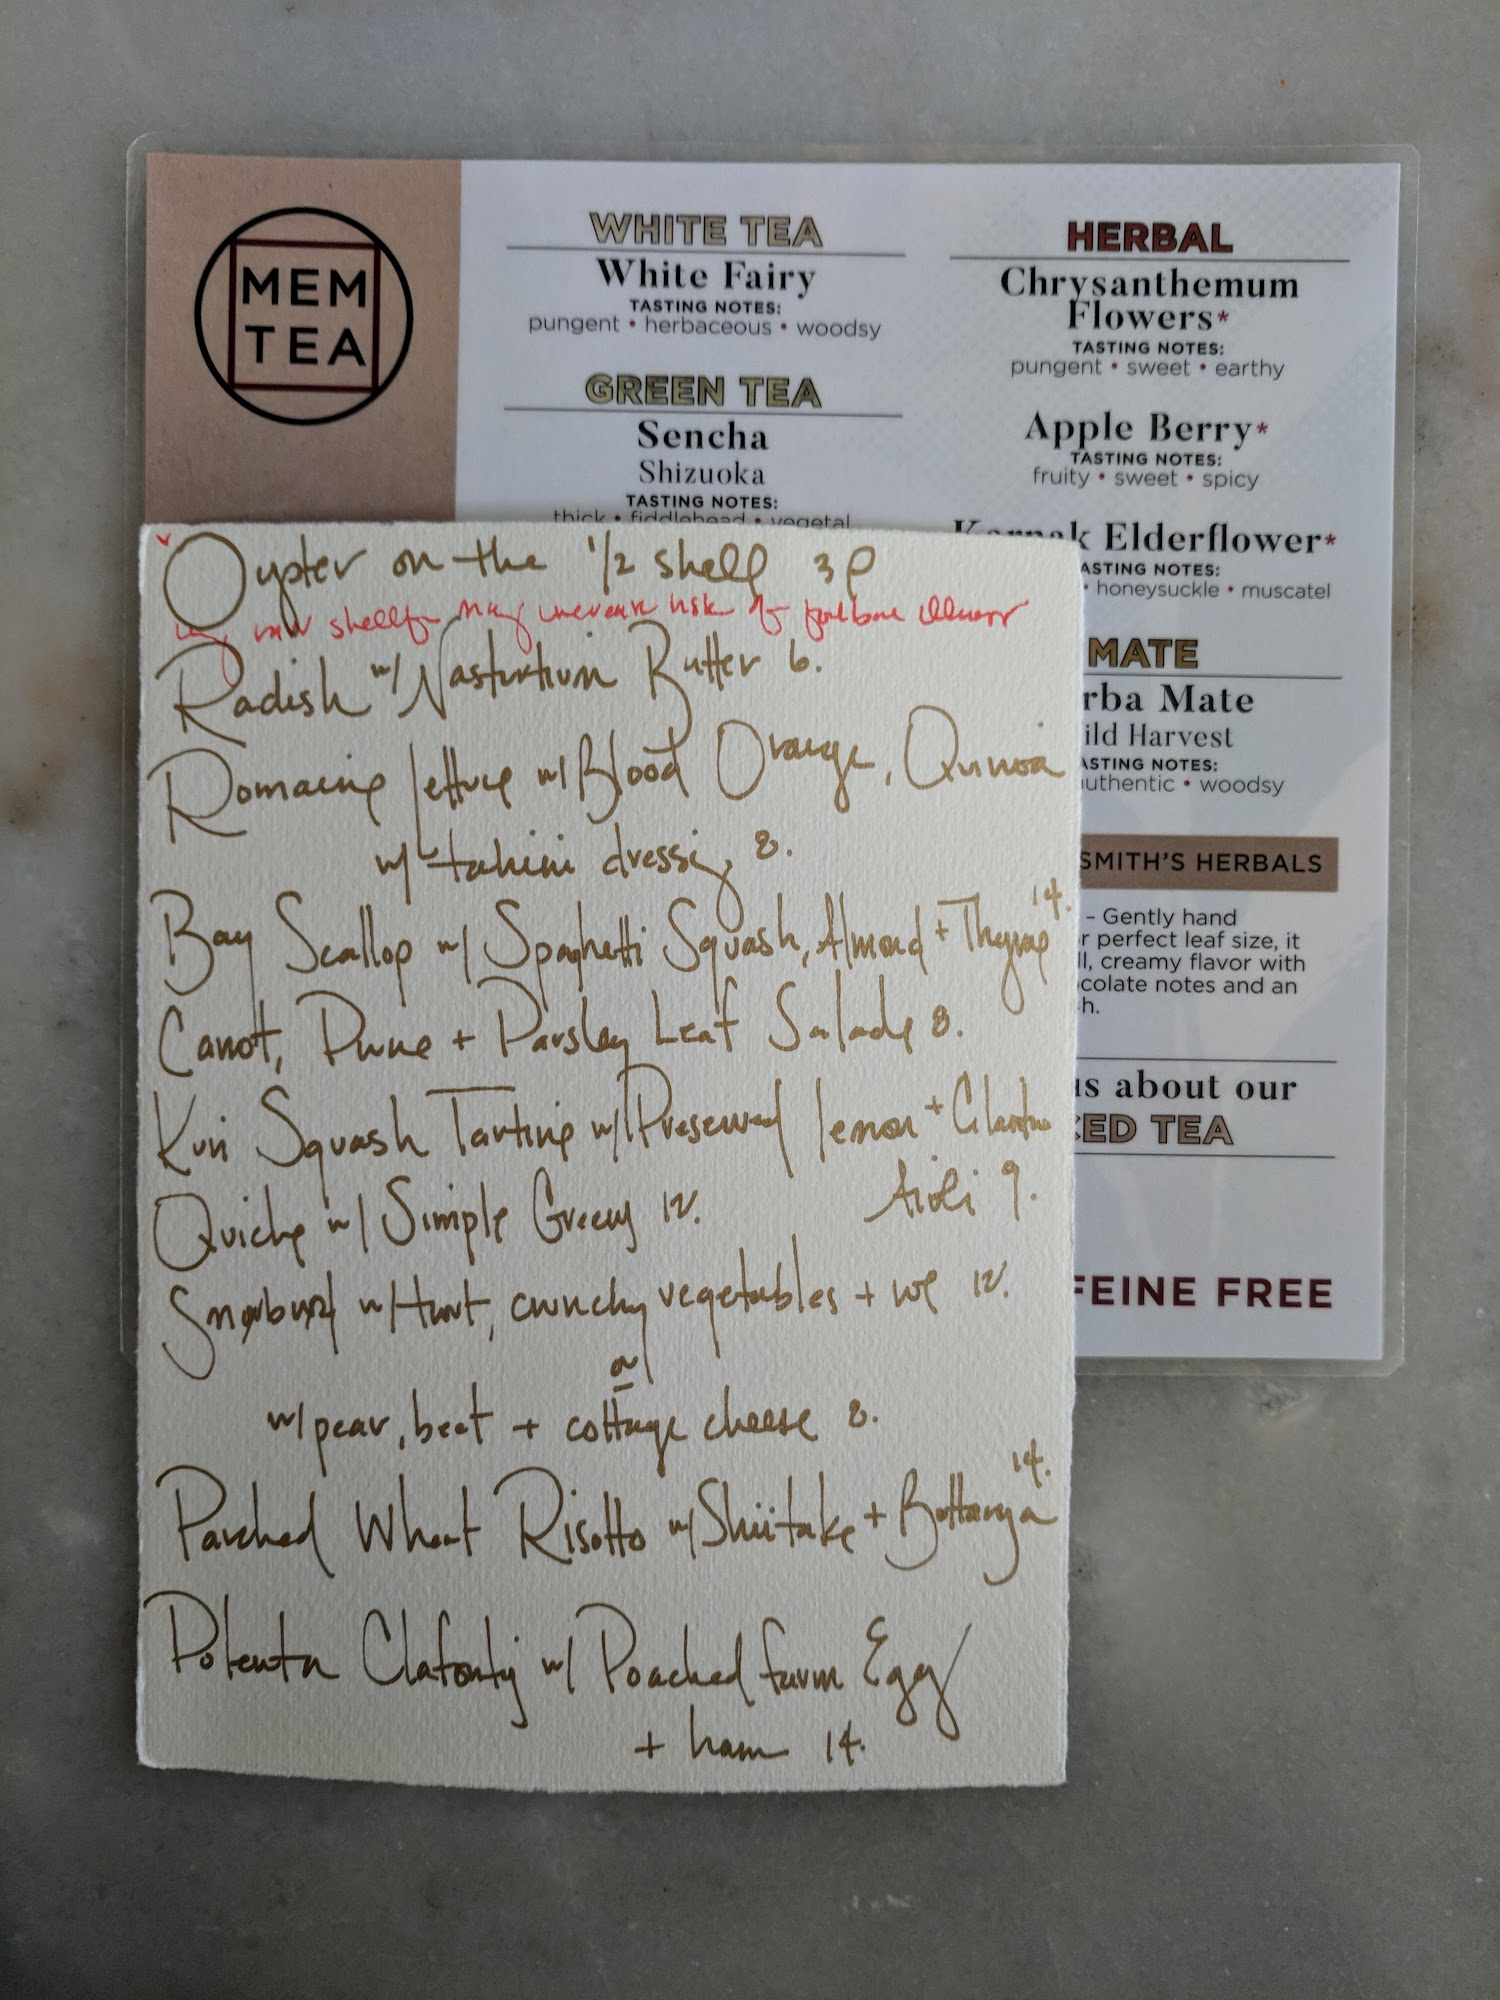 MEM
TEA
WHITE TEA
White Fairy
TASTING NOTES:
pungent • herbaceous • woodsy
GREEN TEA
Sencha
Shizuoka
TASTING NOTES:
thick • fiddlehead • vegetal
HERBAL
Chrysanthemum
Flowers*
TASTING NOTES:
pungent • sweet • earthy
Apple Berry*
TASTING NOTES:
fruity • sweet • spicy
Elderflower*
ASTING NOTES:
• honeysuckle • muscatel
MATE
rba Mate
ild Harvest
ASTING NOTES:
uthentic • woodsy
SMITH'S HERBALS
– Gently hand
r perfect leaf size, it
ll, creamy flavor with
colate notes and an
h.
us about our
ED TEA
FEINE FREE
Oyster on the 1/2 shell 3
raw shellf may increase risk of foodborne illness
Radish w/ Nasturtium Butter 6.
Romaine lettuce w/ Blood Orange, Quinoa
w/ tahini dressing 8.
Bay Scallop w/ Spaghetti Squash, Almond + Thyme 14.
Carrot, Prune + Parsley Leaf Salade 8.
Kuri Squash Tartine w/ Preserved lemon + Cilantro
Aioli 9.
Quiche w/ Simple Greens 12.
w/ crunchy vegetables + 12.
or
w/ pear, beet + cottage cheese 8.
Parched Wheat Risotto w/ Shiitake + Bottarga 14.
Polenta Clafouty w/ Poached farm Egg
+ ham 14.